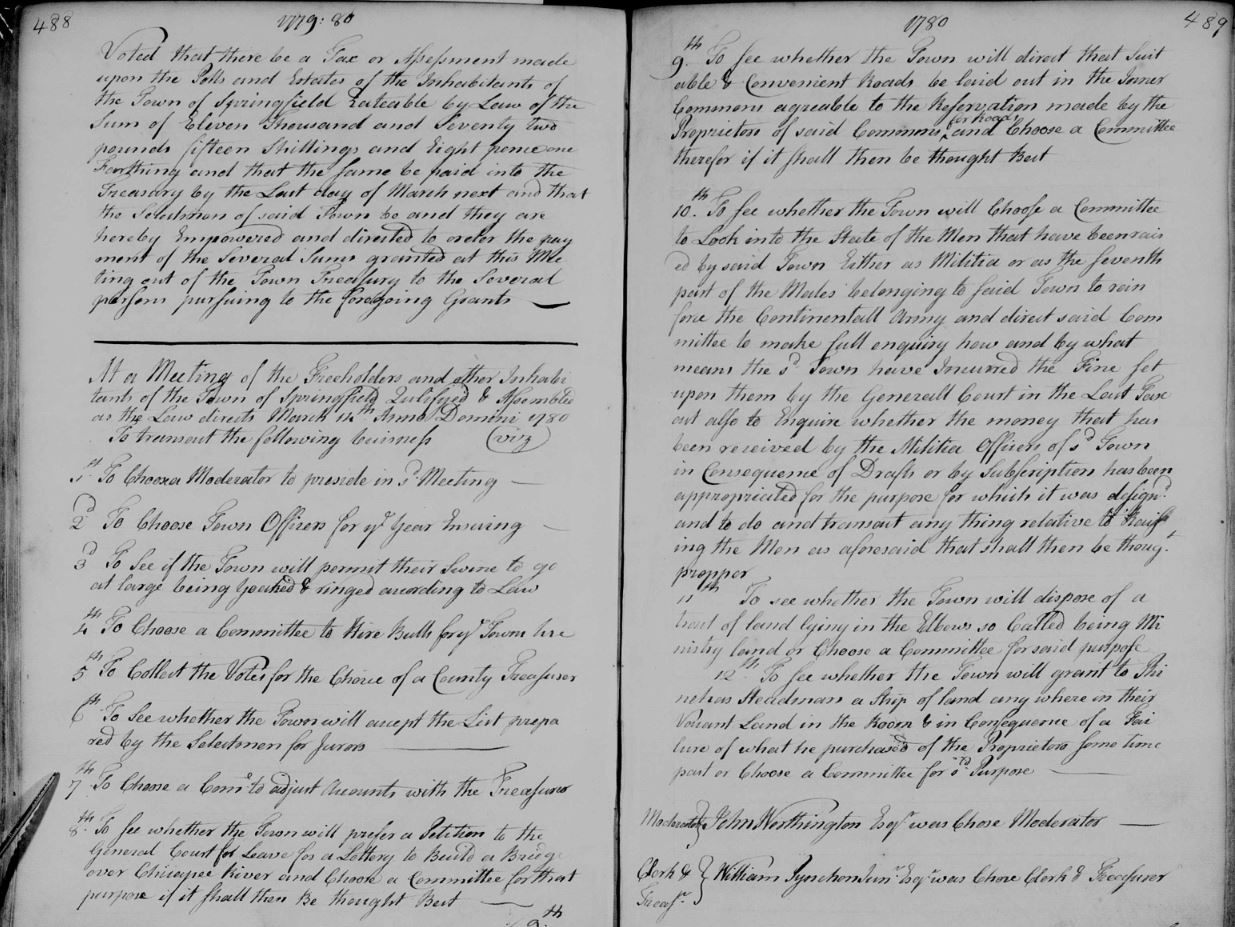 488
1779: 80
Voted that there be a Tax or Assessment made
upon the Polls and Estates of the Inhabitants of
the Town of Springfield Rateable by Law of the
Sum of Eleven Thousand and Seventy two
pounds fifteen Shillings and Eight pence one
Farthing and that the same be paid into the
Treasury by the Last day of March next and that
the Selectmen of said Town be and they are
hereby Empowered and directed to order the pay
ment of the Several Sums granted at this Mee
ting out of the Town Treasury to the Several
persons pursuing to the foregoing Grants
At a Meeting of the Freeholders and other Inhabi
tants of the Town of Springfield Qulified & Assembled
as the Law directs March 14th Anno Domini 1780
To transact the following business (viz)
1st To Choose a Moderator to preside in sd Meeting
2d To Choose Town Officers for ye Year Ensuing
3d To See if the Town will permit their Swine to go
at large being Yoaked & ringed according to Law
4th To Choose a Committee to Hire Bulls for ye Towns Use
5th To Collect the Votes for the Choice of a County Treasurer
6th To See whether the Town will accept the List prepa
red by the Selectmen for Jurors
7th To Choose a Come to adjust Accounts with the Treasurer
8th To see whether the Town will prefer a Petition to the
General Court for Leave for a Lottery to Build a Bridge
over Chicapee River and Choose a Committee for that
purpose if it shall then Be thought Best
9th
1780
489
9th To see whether the Town will direct that Suit
able & Convenient Roads be laid out in the Inner
Commons agreable to the Reservation made by the
Proprietors of said Commons for Roads, and Choose a Committee
therefor if it shall then be thought Best
10th To see whether the Town will Choose a Committee
to Look into the State of the Men that have been rais
ed by said Town Either as Militia or as the seventh
part of the Males belonging to said Town to rein
force the Continentall Army and direct said Com
mittee to make full enquiry how and by what
means the sd Town have Incurred the Fine set
upon them by the Generall Court in the Last Tax
act also to Enquire whether the money that has
been received by the Militia Officers of sd Town
in Consequence of Drafts or by Subscription has been
appropriated for the purpose for which it was design'd
and to do and transact any thing relative to Raiss
ing the Men as aforesaid that shall then be thougt
propper
11th To see whether the Town will dispose of a
tract of land lying in the Elbows so Called being Mi
nistry land or Choose a Committee for said purpose
12th To see whether the Town will grant to Phi
nehas Steadman a Strip of land any where in their
Vacant Land in the Room & in Consequence of a Fai
lure of what he purchased of the Proprietors some time
past or Choose a Committee for sd Purpose
Moderator } John Worthington Esqr was Chose Moderator
Clerk & } William Pynchon Junr Esqr was Chose Clerk & Treasurer
Treasr